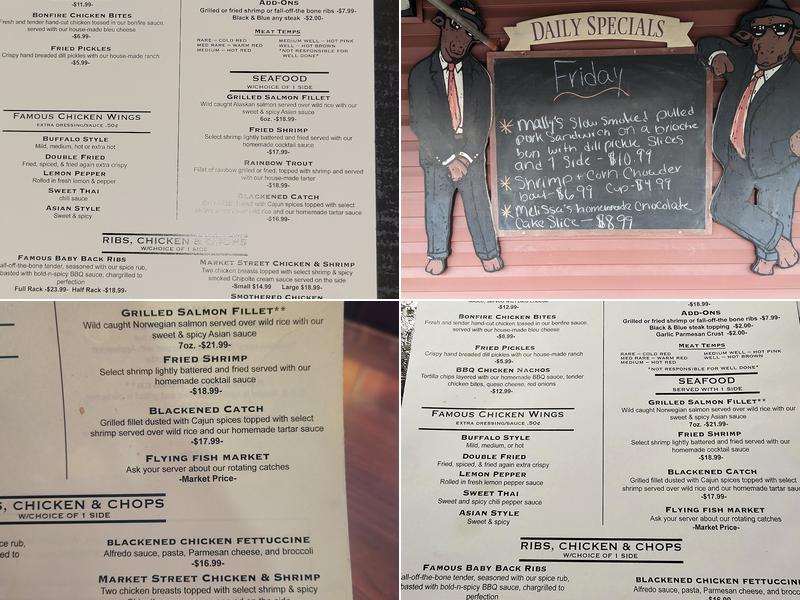 -$11.99-
BONFIRE CHICKEN BITES
Fresh and tender hand-cut chicken tossed in our bonfire sauce,
served with our house-made bleu cheese
-$6.99-
FRIED PICKLES
Crispy hand breaded dill pickles with our house-made ranch
-$5.99-
FAMOUS CHICKEN WINGS
EXTRA DRESSING/SAUCE .50¢
BUFFALO STYLE
Mild, medium, hot or extra hot
DOUBLE FRIED
Fried, spiced, & fried again extra crispy
LEMON PEPPER
Rolled in fresh lemon & pepper
SWEET THAI
chili sauce
ASIAN STYLE
Sweet & spicy
ADD-ONS
Grilled or fried shrimp or fall-off-the-bone ribs -$7.99-
Black & Blue any steak -$2.00-
MEAT TEMPS
RARE – COLD RED
MED RARE – WARM RED
MEDIUM – HOT RED
MEDIUM WELL – HOT PINK
WELL – HOT BROWN
*NOT RESPONSIBLE FOR
WELL DONE*
SEAFOOD
W/CHOICE OF 1 SIDE
GRILLED SALMON FILLET
Wild caught Alaskan salmon served over wild rice with our
sweet & spicy Asian sauce
6oz. -$18.99-
FRIED SHRIMP
Select shrimp lightly battered and fried served with our
homemade cocktail sauce
-$17.99-
RAINBOW TROUT
Fillet of rainbow grilled or fried, topped with shrimp and served
with our house-made tarter
-$18.99-
BLACKENED CATCH
dusted with Cajun spices topped with select
over wild rice and our homemade tartar sauce
-$16.99-
RIBS, CHICKEN & CHOPS
W/CHOICE OF 1 SIDE
FAMOUS BABY BACK RIBS
all-off-the-bone tender, seasoned with our spice rub,
basted with bold-n-spicy BBQ sauce, chargrilled to
perfection
Full Rack -$23.99- Half Rack -$18.99-
MARKET STREET CHICKEN & SHRIMP
Two chicken breasts topped with select shrimp & spicy
smoked Chipotle cream sauce served on the side
-Small $14.99 Large $18.99-
SMOTHERED CHICKEN
DAILY SPECIALS
Friday
* Mally's Slow Smoked pulled
pork Sandwich on a brioche
bun with dill pickle Slices
and 1 Side - $10.99
* Shrimp + Corn Chowder
bowl-$6.99 Cup-$4.99
* Melissa's homemade chocolate
Cake Slice - $8.99
GRILLED SALMON FILLET**
Wild caught Norwegian salmon served over wild rice with our
sweet & spicy Asian sauce
7oz. -$21.99-
FRIED SHRIMP
Select shrimp lightly battered and fried served with our
homemade cocktail sauce
-$18.99-
BLACKENED CATCH
Grilled fillet dusted with Cajun spices topped with select
shrimp served over wild rice and our homemade tartar sauce
-$17.99-
FLYING FISH MARKET
Ask your server about our rotating catches
-Market Price-
S, CHICKEN & CHOPS
W/CHOICE OF 1 SIDE
ice rub,
ed to
BLACKENED CHICKEN FETTUCCINE
Alfredo sauce, pasta, Parmesan cheese, and broccoli
-$16.99-
MARKET STREET CHICKEN & SHRIMP
Two chicken breasts topped with select shrimp & spicy
-$12.99-
BONFIRE CHICKEN BITES
Fresh and tender hand-cut chicken tossed in our bonfire sauce,
served with our house-made bleu cheese
-$6.99-
FRIED PICKLES
Crispy hand breaded dill pickles with our house-made ranch
-$5.99-
BBQ CHICKEN NACHOS
Tortilla chips layered with our homemade BBQ sauce, tender
chicken bites, queso cheese, red onions
-$12.99-
FAMOUS CHICKEN WINGS
EXTRA DRESSING/SAUCE .50¢
BUFFALO STYLE
Mild, medium, or hot
DOUBLE FRIED
Fried, spiced, & fried again extra crispy
LEMON PEPPER
Rolled in fresh lemon pepper sauce
SWEET THAI
Sweet and spicy chili pepper sauce
ASIAN STYLE
Sweet & spicy
-$18.99-
ADD-ONS
Grilled or fried shrimp or fall-off-the bone ribs -$7.99-
Black & Blue steak topping -$2.00-
Garlic Parmesan Crust -$2.00-
MEAT TEMPS
RARE – COLD RED
MED RARE – WARM RED
MEDIUM – HOT RED
MEDIUM WELL – HOT PINK
WELL – HOT BROWN
*NOT RESPONSIBLE FOR WELL DONE*
SEAFOOD
SERVED WITH 1 SIDE
GRILLED SALMON FILLET**
Wild caught Norwegian salmon served over wild rice with our
sweet & spicy Asian sauce
7oz. -$21.99-
FRIED SHRIMP
Select shrimp lightly battered and fried served with our
homemade cocktail sauce
-$18.99-
BLACKENED CATCH
Grilled fillet dusted with Cajun spices topped with select
shrimp served over wild rice and our homemade tartar sauc
-$17.99-
FLYING FISH MARKET
Ask your server about our rotating catches
-Market Price-
RIBS, CHICKEN & CHOPS
W/CHOICE OF 1 SIDE
FAMOUS BABY BACK RIBS
all-off-the-bone tender, seasoned with our spice rub,
basted with bold-n-spicy BBQ sauce, chargrilled to
perfection
BLACKENED CHICKEN FETTUCCIN
Alfredo sauce, pasta, Parmesan cheese, and brocc
-$16.99-